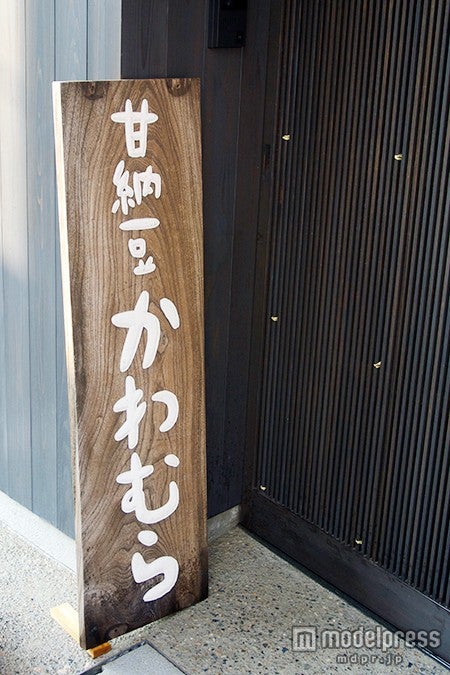 甘納豆かわむら
m modelpress
mdpr.jp